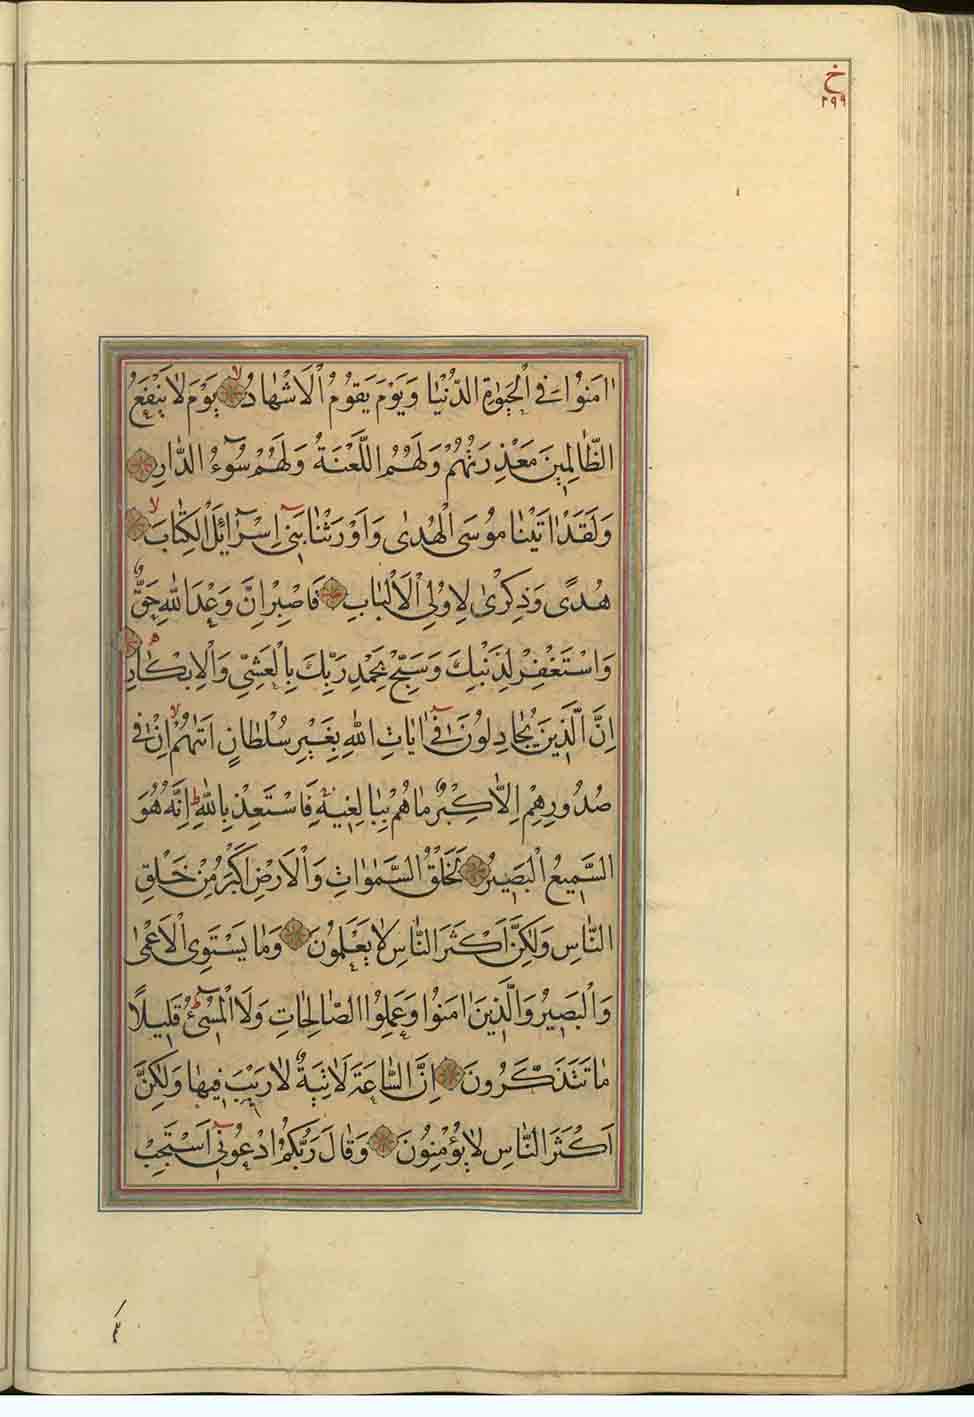 خ
٢٩٩
اٰمَنُوا فِي الْحَيٰوةِ الدُّنْيَا وَيَوْمَ يَقُومُ الْاَشْهَادُ يَوْمَ لَا يَنْفَعُ
الظَّالِمِينَ مَعْذِرَتُهُمْ وَلَهُمُ اللَّعْنَةُ وَلَهُمْ سُوءُ الدَّارِ
وَلَقَدْ اٰتَيْنَا مُوسَى الْهُدٰى وَاَوْرَثْنَا بَنِي اِسْرَائِلَ الْكِتَابَ
هُدًى وَذِكْرٰى لِاُولِي الْاَلْبَابِ فَاصْبِرْ اِنَّ وَعْدَ اللّٰهِ حَقٌّ
وَاسْتَغْفِرْ لِذَنْبِكَ وَسَبِّحْ بِحَمْدِ رَبِّكَ بِالْعَشِيِّ وَالْاِبْكَارِ
اِنَّ الَّذِينَ يُجَادِلُونَ فِي اٰيَاتِ اللّٰهِ بِغَيْرِ سُلْطَانٍ اَتٰهُمْ اِنْ فِي
صُدُورِهِمْ اِلَّا كِبْرٌ مَا هُمْ بِبَالِغِيهِ فَاسْتَعِذْ بِاللّٰهِ اِنَّهُ هُوَ
السَّمِيعُ الْبَصِيرُ لَخَلْقُ السَّمٰوَاتِ وَالْاَرْضِ اَكْبَرُ مِنْ خَلْقِ
النَّاسِ وَلٰكِنَّ اَكْثَرَ النَّاسِ لَا يَعْلَمُونَ وَمَا يَسْتَوِي الْاَعْمٰى
وَالْبَصِيرُ وَالَّذِينَ اٰمَنُوا وَعَمِلُوا الصَّالِحَاتِ وَلَا الْمُسِيءُ قَلِيلًا
مَا تَتَذَكَّرُونَ اِنَّ السَّاعَةَ لَاٰتِيَةٌ لَا رَيْبَ فِيهَا وَلٰكِنَّ
اَكْثَرَ النَّاسِ لَا يُؤْمِنُونَ وَقَالَ رَبُّكُمُ ادْعُونِي اَسْتَجِبْ